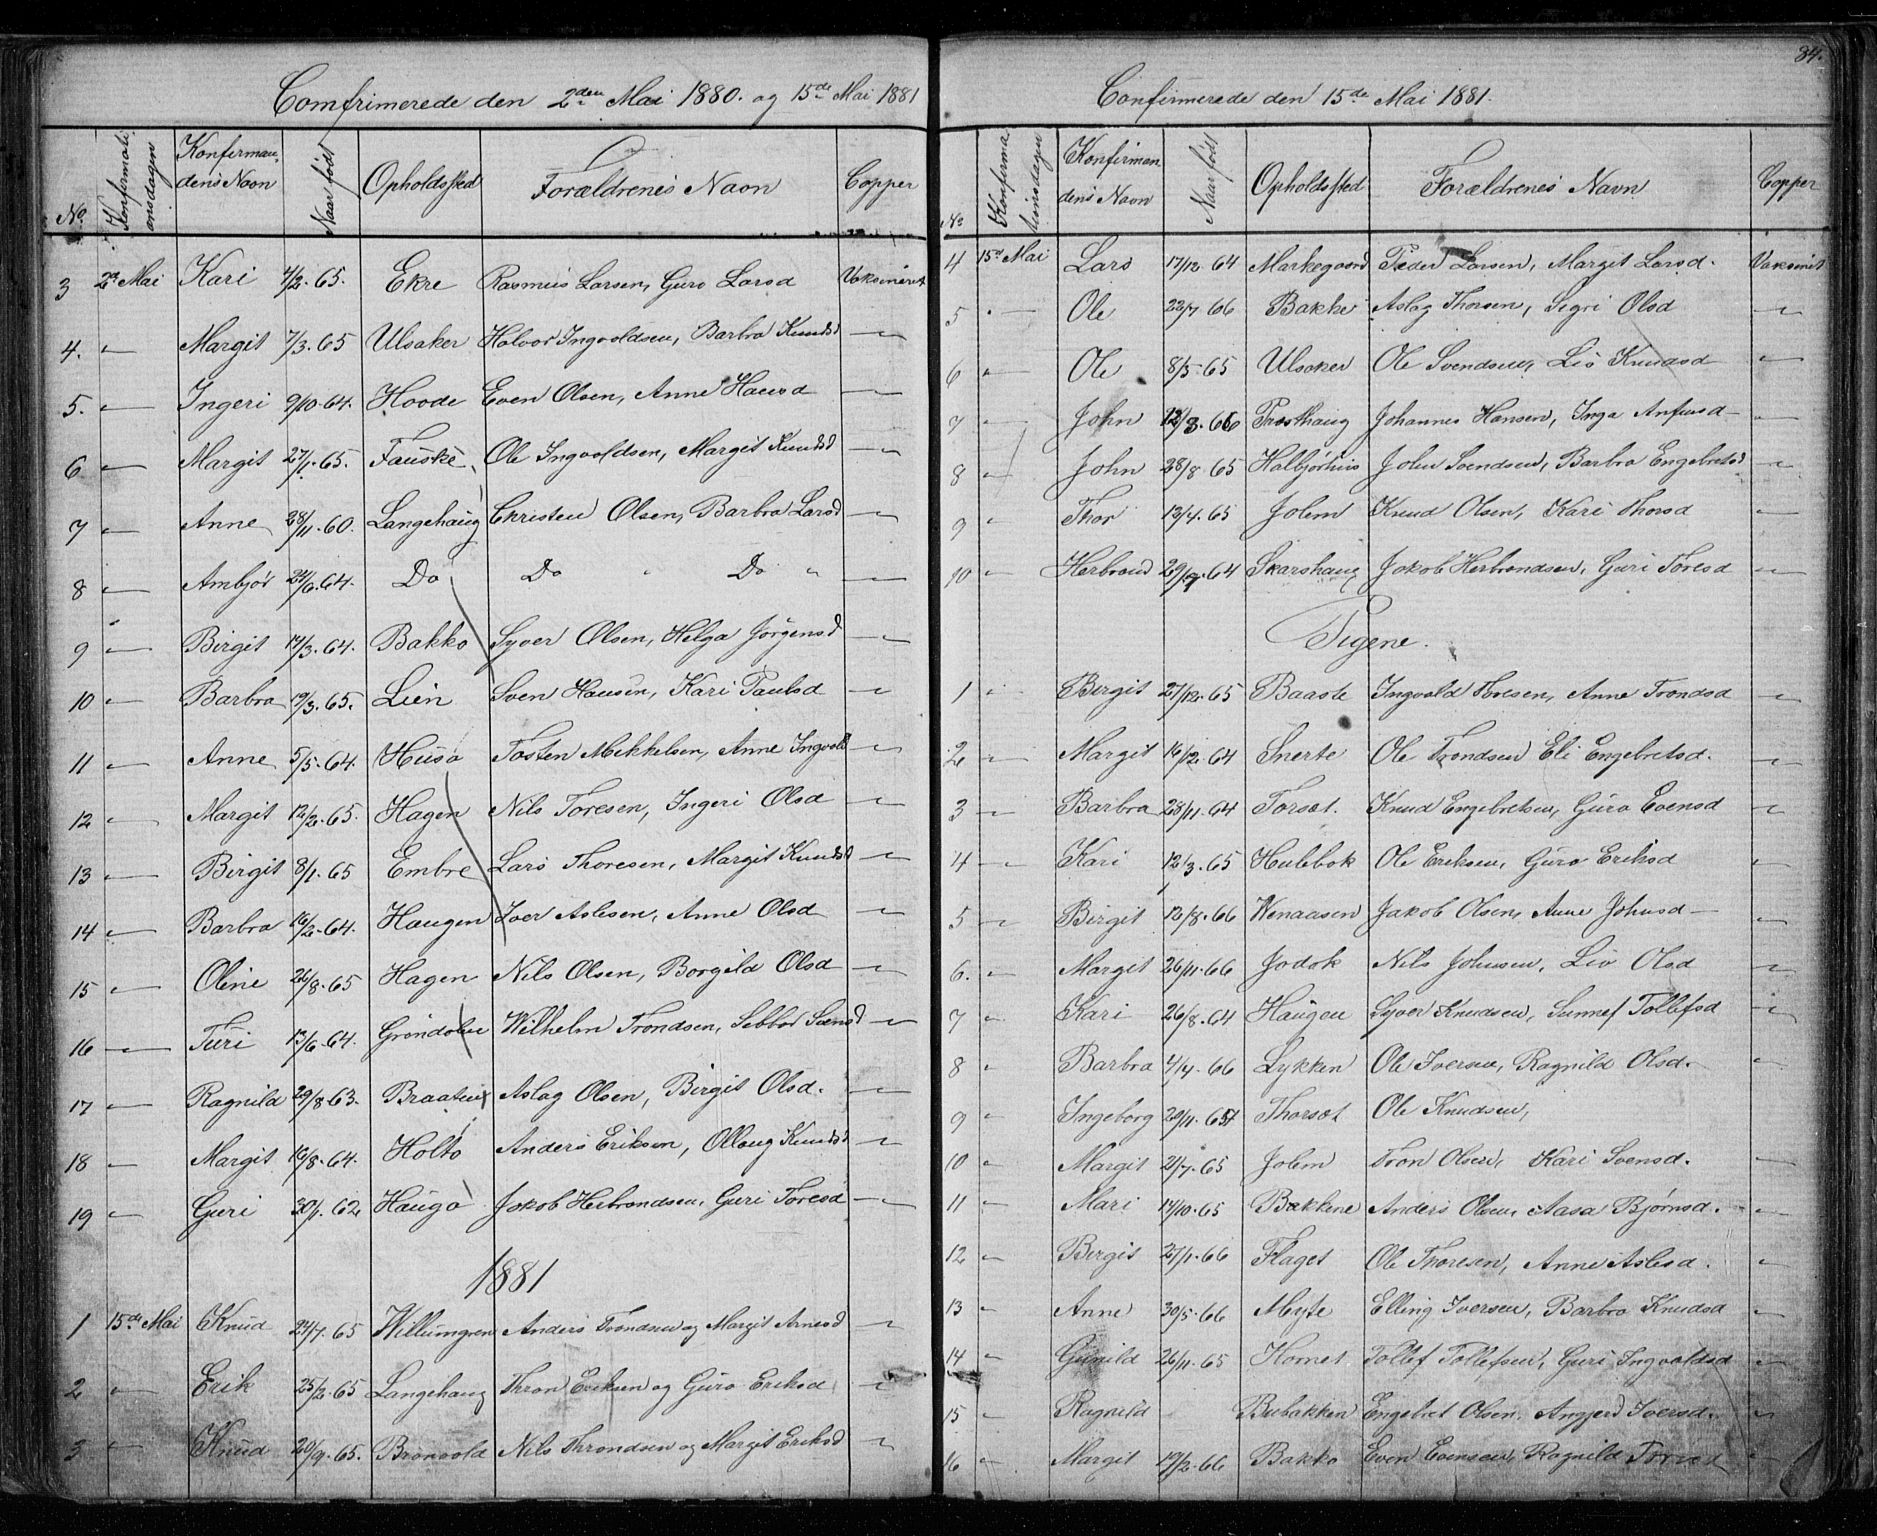 Comfrimerede den 2den Mai 1880. og 15de Mai 1881
No. Konfirmationsdagen Konfirmandens Navn Naar født Opholdssted Forældrenes Navn Copper
3 2d Mai Kari 4/2. 65. Ekre Rasmus Larsen, Guro Larsd Vaksineret
4. " Margit 7/3. 65 Ulsaker Halvor Ingvoldsen, Barbro Knudsd "
5. " Ingeri 9/10. 64. Hoode Even Olsen, Anne Hansd "
6 " Margit 27/1. 65. Fauske Ole Ingvoldsen, Margit Knudsd "
7 " Anne 28/11. 60. Langehaug Christen Olsen, Barbro Larsd "
8 " Ambjør 24/6. 64. Do Do " Do " "
9 " Birgit 14/3. 64. Bakko Syver Olsen, Helga Jørgensd "
10 " Barbra 19/3. 65. Lien Sven Hansen, Kari Paulsd "
11 " Anne 5/5. 64. Huso Tosten Mikkelsen, Anne Ingvold "
12 " Margit 12/2. 65. Hagen Nils Toresen, Ingeri Olsd "
13 " Birgit 8/1. 65 Embre Lars Thoresen, Margit Knudsd "
14 " Barbra 16/2. 64. Haugen Iver Aslesen, Anne Olsd "
15 " Oline 26/8. 65 Hagen Nils Olsen, Borgild Olsd "
16 " Turi 13/6. 64. Grøndolen Wilhelm Trondsen, Sebbor Svensd "
17 " Ragnild 29/8 63. Braaten Aslag Olsen, Birgit Olsd. "
18 " Margit 16/8. 64. Holto Anders Eriksen, Ollaug Knudsd "
19 " Guri 30/1. 62 Haugo Jakob Herbrandsen, Guri Toresd "
1881
1 15de Mai Knud 24/7. 65 Willumgren Anders Trondsen og Margit Arnesd "
2 " Erik 25/2. 65 Langehaug Thron Eriksen og Guro Eriksd "
3 " Knud 20/9. 65. Bronvold Nils Throndsen og Margit Eriksd "
84.
Confirmerede den 15de Mai 1881.
No Konfirmationsdagen Konfirmandens Navn Naar født Opholdssted Forældrenes Navn Copper
4 15d Mai Lars 17/12. 64 Markegaard Peder Larsen, Margit Larsd. Vaksinet
5 " Ole 22/7 66 Bakke Aslag Thorsen, Sigri Olsd "
6 " Ole 8/5. 65 Ulsaker Ole Svendsen, Lis Knudsd "
7 " John 12/3. 66 Prosthaug Johannes Hansen, Inga Anfinsd "
8 " John 28/8. 65 Halbjørhus John Svendsen, Barbro Engebretsd "
9 " Thor 13/4. 65 Jolem Knud Olsen, Kari Thorsd "
10 " Herbrand 29/9. 64 Skarshaug Jakob Herbrandsen, Guri Toresd "
Pigene.
1 " Birgit 27/12. 65 Baaste Ingvald Toresen, Anne Trondsd "
2 " Margit 16/12. 64 Snerte Ole Trondsen Eli Engebretsd. "
3 " Barbra 28/11. 64 Torset. Knud Engebretsen, Guro Evensd "
4 " Kari 12/3. 65 Hulebak Ole Eriksen, Guro Eriksd "
5 " Birgit 12/8. 66 Wenaasen Jakob Olsen, Anne Johnsd "
6. " Margit 26/11. 66 Jodok Nils Johnsen, Liv Olsd "
7 " Kari 26/8. 64 Haugen Syver Knudsen, Sunnef Tollefsd "
8 " Barbra 4/4. 66 Lykken Ole Iversen, Ragnild Olsd. "
9 " Ingeborg 20/11. 65 Thorset Ole Knudsen,
10 " Margit 21/7. 65 Jolem Tron Olsen, Kari Svensd. "
11 " Mari 14/10. 65 Bakkene Anders Olsen, Aasa Bjørnsd. "
12 " Birgit 27/1. 66 Flaget Ole Thoresen, Anne Aslesd. "
13 " Anne 30/5. 66 Myte Elling Iversen, Barbro Knudsd "
14 " Gunild 26/11. 65 Komet Tollef Tollefsen, Guri Ingvoldsd "
15 " Ragnild Bubakken Engebret Olsen, Angjerd Iversd. "
16 " Margit 19/2. 66 Bakko Even Evensen, Ragnild Toresd "